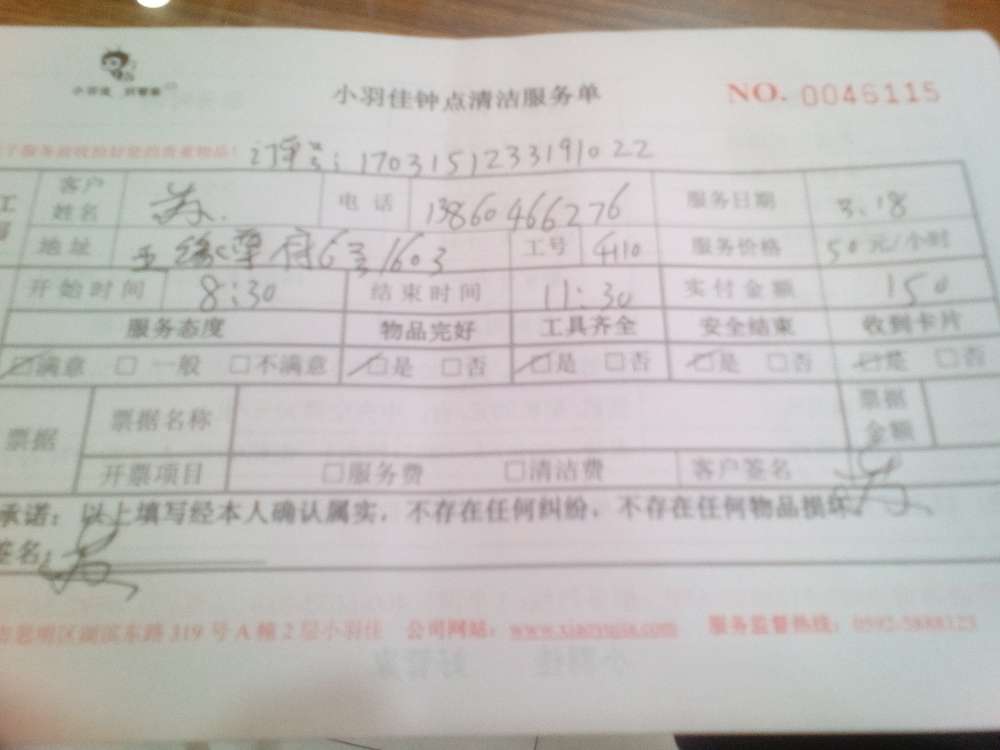 小羽佳 好管家
小羽佳钟点清洁服务单
NO. 0046115
了服务前收拾好您的贵重物品!
订单号:1703151233191022
客户姓名 苏. 电话 13860466276 服务日期 3.18
地址 6号1603 工号 4110 服务价格 50元/小时
开始时间 8:30 结束时间 11:30 实付金额 150
服务态度 物品完好 工具齐全 安全结束 收到卡片
☑满意 □一般 □不满意 ☑是 □否 ☑是 □否 ☑是 □否 ☑是 □否
票据 票据名称 票据金额
开票项目 □服务费 □清洁费 客户签名 苏
承诺:以上填写经本人确认属实,不存在任何纠纷,不存在任何物品损坏。
签名: 苏
市思明区湖滨东路319号A幢2层小羽佳 公司网站:www.xiaoyujia.com 服务监督热线:0592-5888123